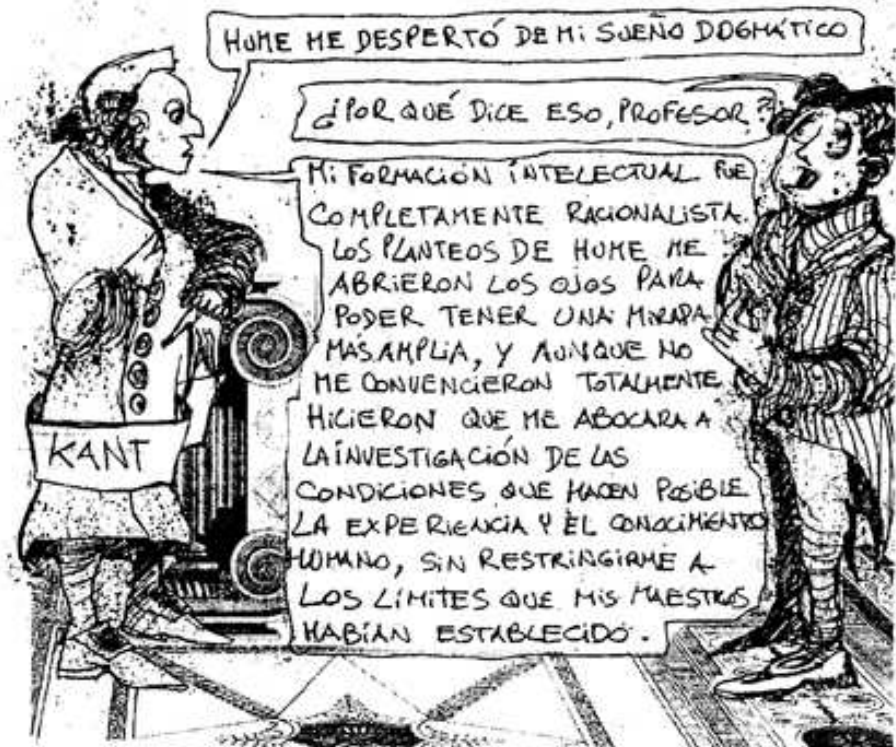 HUME ME DESPERTÓ DE MI SUEÑO DOGMÁTICO
¿POR QUÉ DICE ESO, PROFESOR?
MI FORMACIÓN INTELECTUAL FUE
COMPLETAMENTE RACIONALISTA.
LOS PLANTEOS DE HUME ME
ABRIERON LOS OJOS PARA
PODER TENER UNA MIRADA
MAS AMPLIA, Y AUNQUE NO
ME CONVENCIERON TOTALMENTE
HICIERON QUE ME ABOCARA A
LA INVESTIGACIÓN DE LAS
CONDICIONES QUE HACEN POSIBLE
LA EXPERIENCIA Y EL CONOCIMIENTO
HUMANO, SIN RESTRINGIRME A
LOS LÍMITES QUE MIS MAESTROS
HABÍAN ESTABLECIDO.
KANT